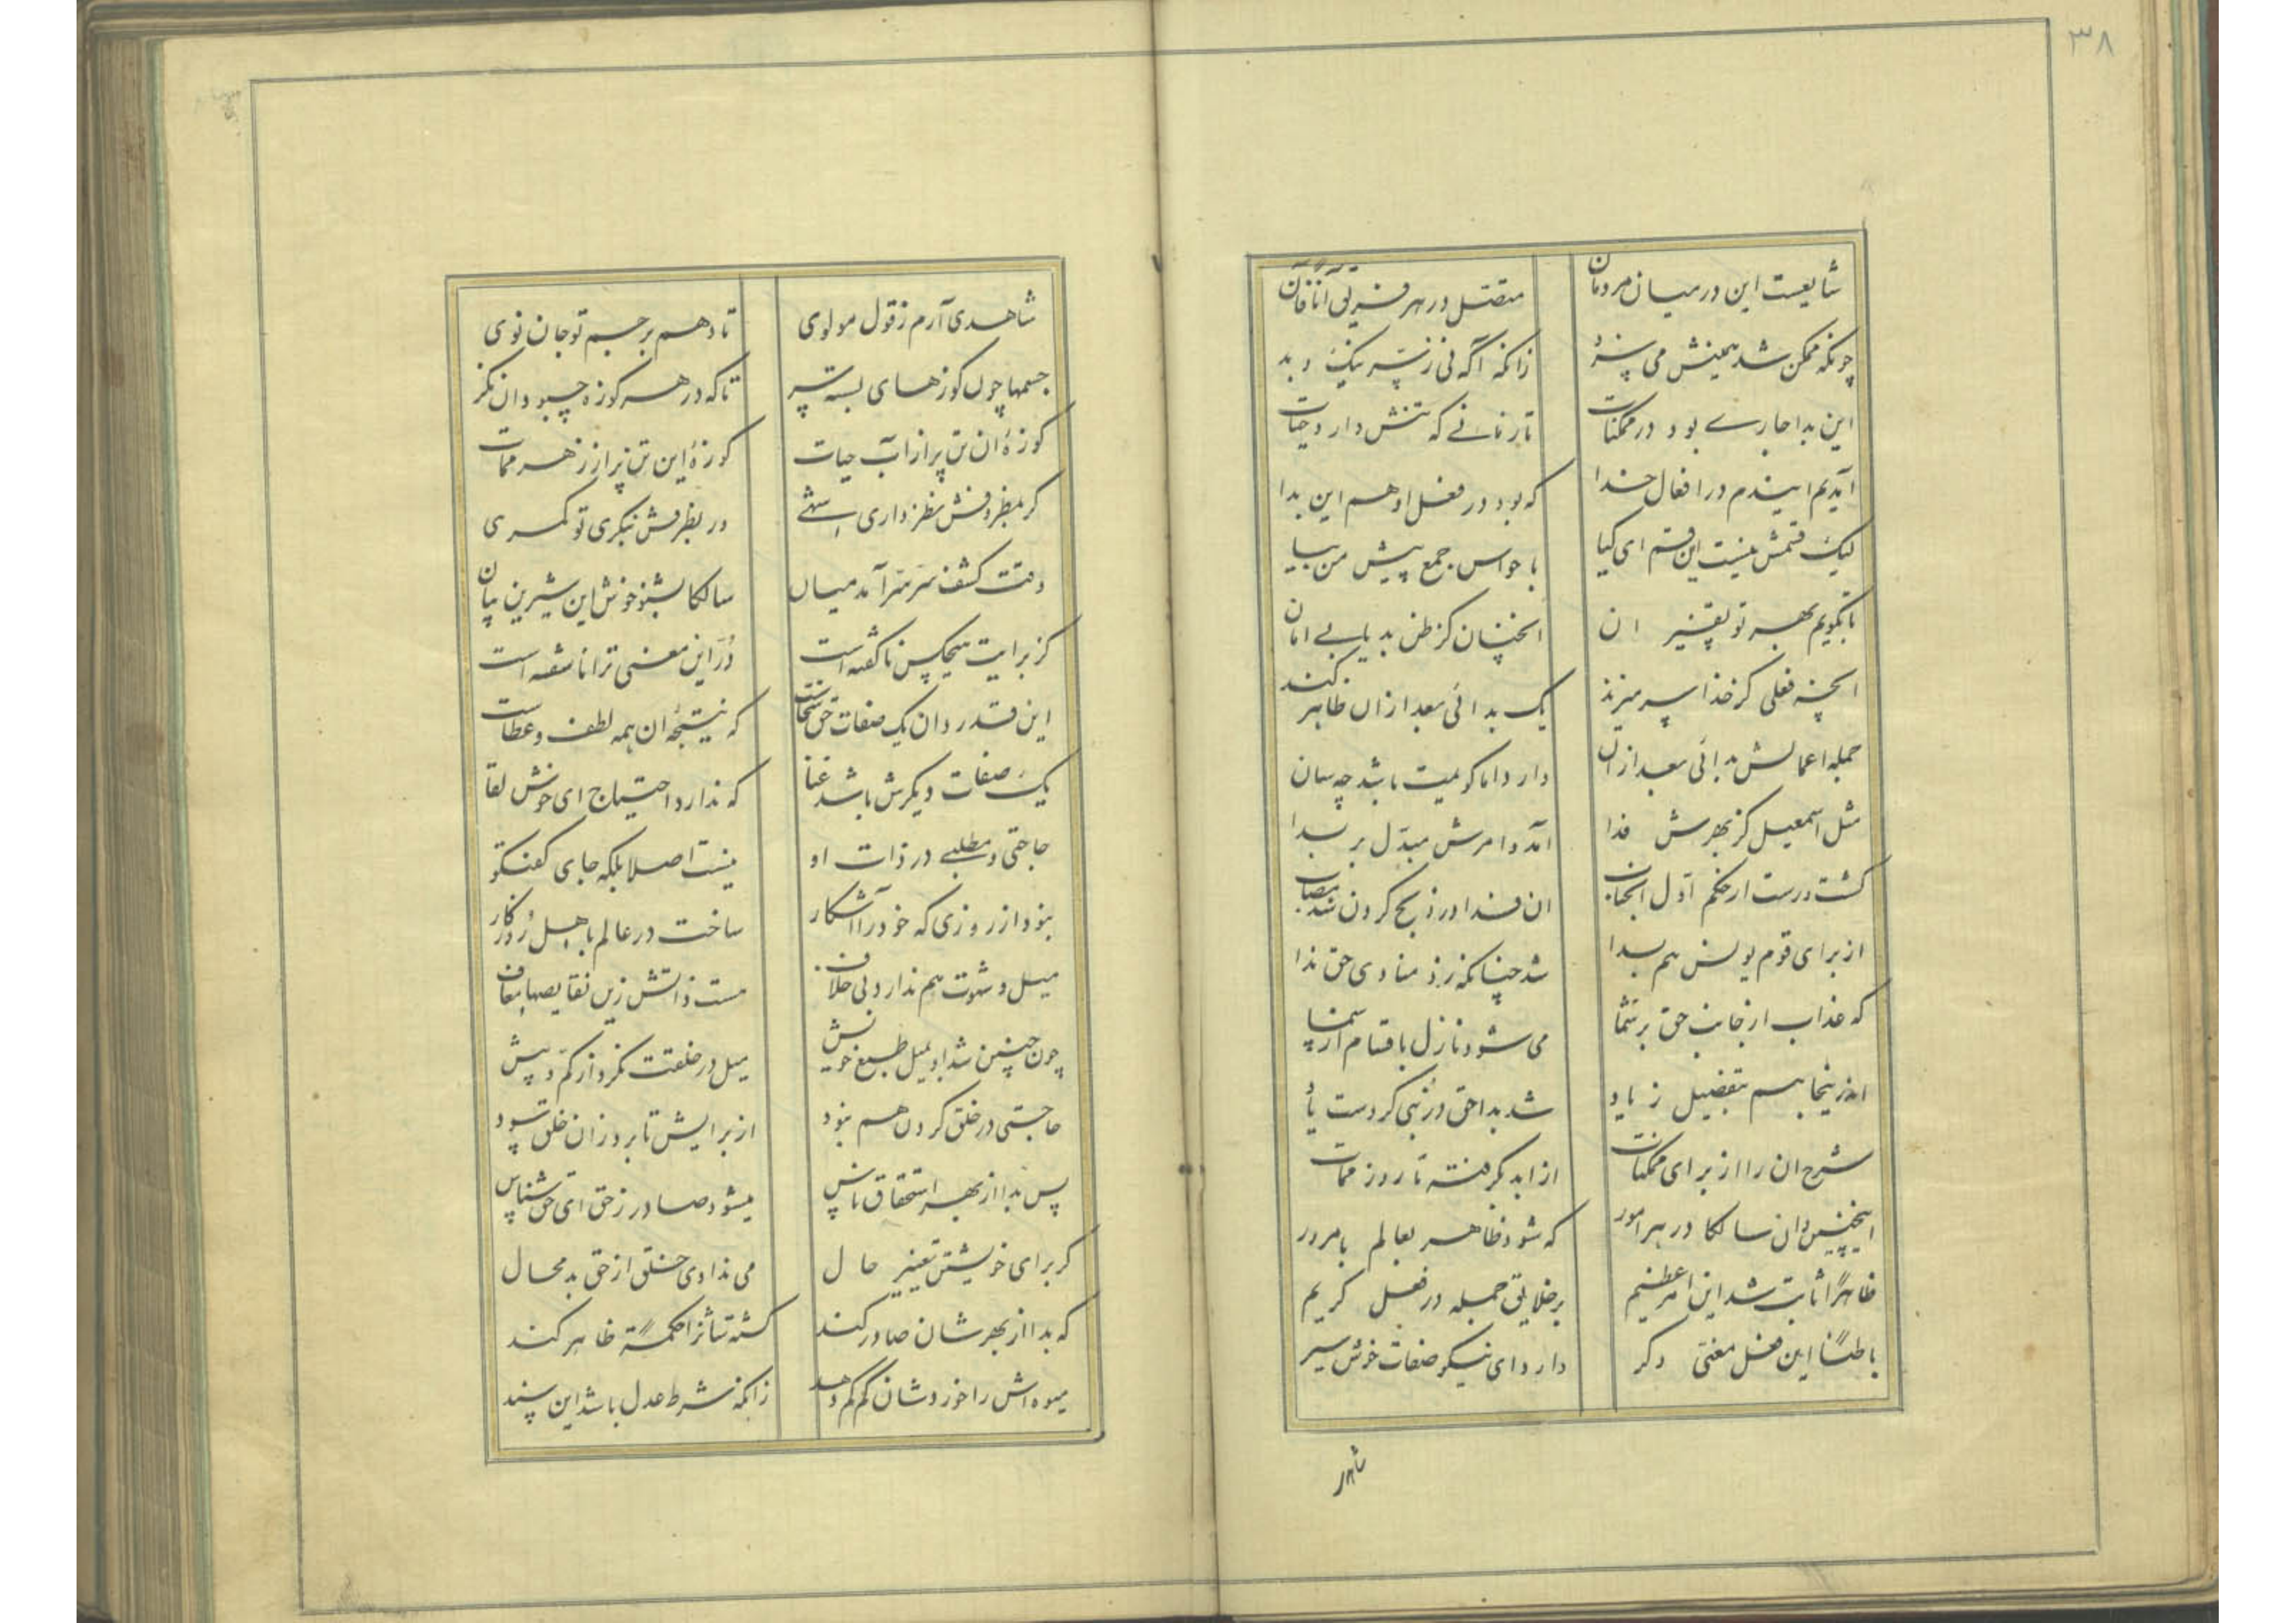 ۳۸
شایعست این در میان مردمان
متصل در هر فریق آناً فآن
چونکه ممکن شد همینش می سزد
زانکه آگه نی ز سر نیک و بد
این بدا جاری بود در ممکنات
تا زمانی که تنش دارد حیات
آمدیم ایندم در افعال خدا
که بود در فعل او هم این بدا
لیک قسمش نیست این قسم ای کیا
با حواس جمع پیش من بیا
تا بگویم بهر تو تغییر ان
انچنان کز ظن بد یابی امان
انچه فعلی کز خدا سر میزند
یک بدائی بعد ازان ظاهر کند
جمله اعمالش بدائی بعد ازان
دارد اما کویمت باشد چه سان
مثل اسمعیل کز بهرش فدا
آمد و امرش مبدّل بر بدا
کشت درست از حکم اوّل انجناب
ان فدا در ذبح کردن شد مصاب
از برای قوم یونس هم بدا
شد چنانکه زد منادی حق ندا
که عذاب از جانب حق بر شما
می شود نازل باقسام از سما
اندرینجا هم بتفضیل زیاد
شد بدا حق در نُبی کردست یاد
شرح ان را از برای ممکنات
از ابد کرفته تا روز ممات
اینچنین دان سالکا در هر امور
که شود ظاهر بعالم بامرور
ظاهراً ثابت شد این امر عظیم
بر خلایق جمله در فعل کریم
باطناً این فعل معنی دکر
دارد ای نیکو صفات خوش سیر
شاهد
شاهدی آرم ز قول مولوی
تا دهم بر جسم تو جان نوی
جسمها چون کوزهای بسته سر
تا که در هر کوزه چبود ان نکر
کوزهٔ ان تن پر از آب حیات
کوزهٔ این تن پر از زهر ممات
کر بمظروفش نظر داری شهی
ور بظرفش بنکری تو کمرهی
وقت کشف سرّ سرّ آمد میان
سالکا بشنو خوش این شیرین بیان
کز برایت هیچکس ناکفته است
دُرّ این معنی ترا ناسفته است
این قدر دان یک صفات حق سخاست
که نتیجهٔ ان همه لطف و عطاست
یک صفات دیکرش باشد غنا
که ندارد احتیاج ای خوش لقا
حاجتی و مطلبی در ذات او
نیست اصلا بلکه جای کفتکو
بود از روزی که خود را آشکار
ساخت در عالم باهل روزکار
میل و شهوت هم ندارد بی خلاف
هست ذاتش زین نقایصها معاف
چون چنین شد او بمیل طبع خویش
میل در خلقت نکرد از کمّ و بیش
حاجتی در خلق کردن هم نبود
از برایش تا برد زان خلق سود
پس بدا از بهر استحقاق ناس
میشود صادر ز حق ای حق شناس
کر برای خویشتن تغییر حال
می ندادی خلق از حق بد محال
که بدا از بهرشان صادر کند
کشته تاثر احکمةً ظاهر کند
میوه اش را خوردشان کم کم دهد
زانکه شرط عدل باشد این پسند